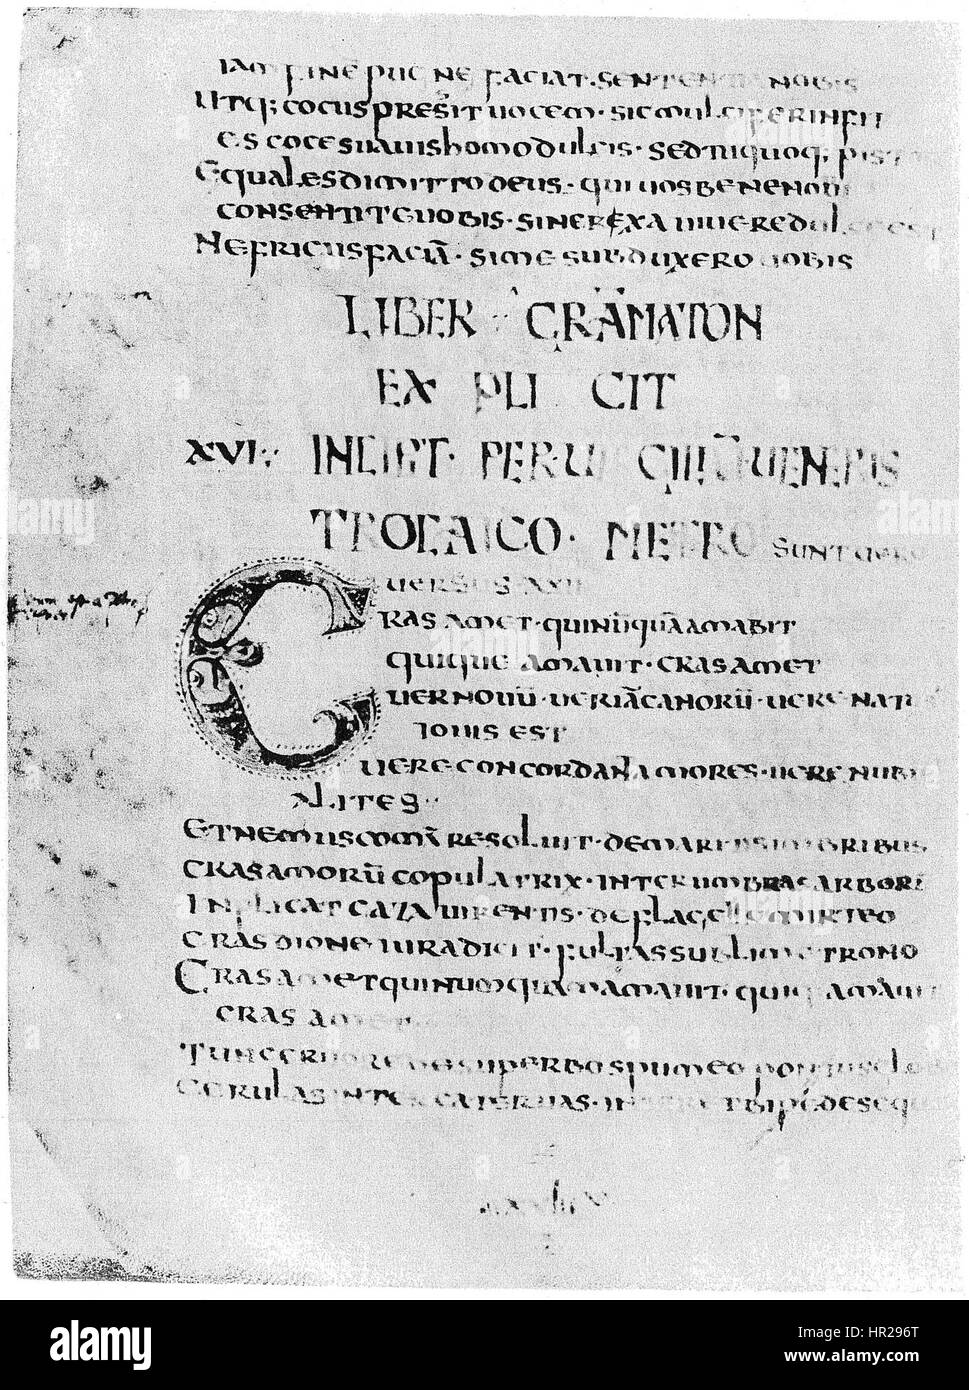 IAM FINE PUGNE FACIAT SENTENTIA NOBIS
UTQ; COCUS PRESSIT UOCEM SIC MULCIFER INFIT
ES COCE SUAUIS HOMO DULCIS SED TUQUOQ; PISTOR
EQUALES DIMITTO DEUS QUI UOS BENE NOUI
CONSENTITE UOBIS SINE REXA UIUERE DULCE EST
NE FRICUS FACIA SI ME SUBDUXERO UOBIS
LIBER GRAMATON
EX PLI CIT
XVI INCIPT PER UENERIS
TROCAICO METRO SUNT UERO
UERSUS XXII
CRAS AMET QUI NUQUA AMABIT
QUIQUE AMAUIT CRAS AMET
UER NOUU UER IA CANORU UERE NAT
IOUIS EST
UERE CONCORDANT AMORES UERE NUB
ALITES
ET NEMUS COMA RESOLUIT DE MARITIS IMBRIBUS
CRAS AMORU COPULATRIX INTER UMBRAS ARBORE
INPLICAT CAZA UIRENTIS DE FLAGELLO MURTEO
CRAS DIONE IURA DICIT FULTA SUBLIMI TRONO
CRAS AMET QUI NUMQUAM AMAUIT QUIQ AMAUIT
CRAS AMET
TUNC CRUORE DE SUPERBO SPUMEO PONTUS GLOB
CERULAS INTER CATERUAS INTER ET BIPEDES EQU
alamy
Image ID: HR296T
www.alamy.com